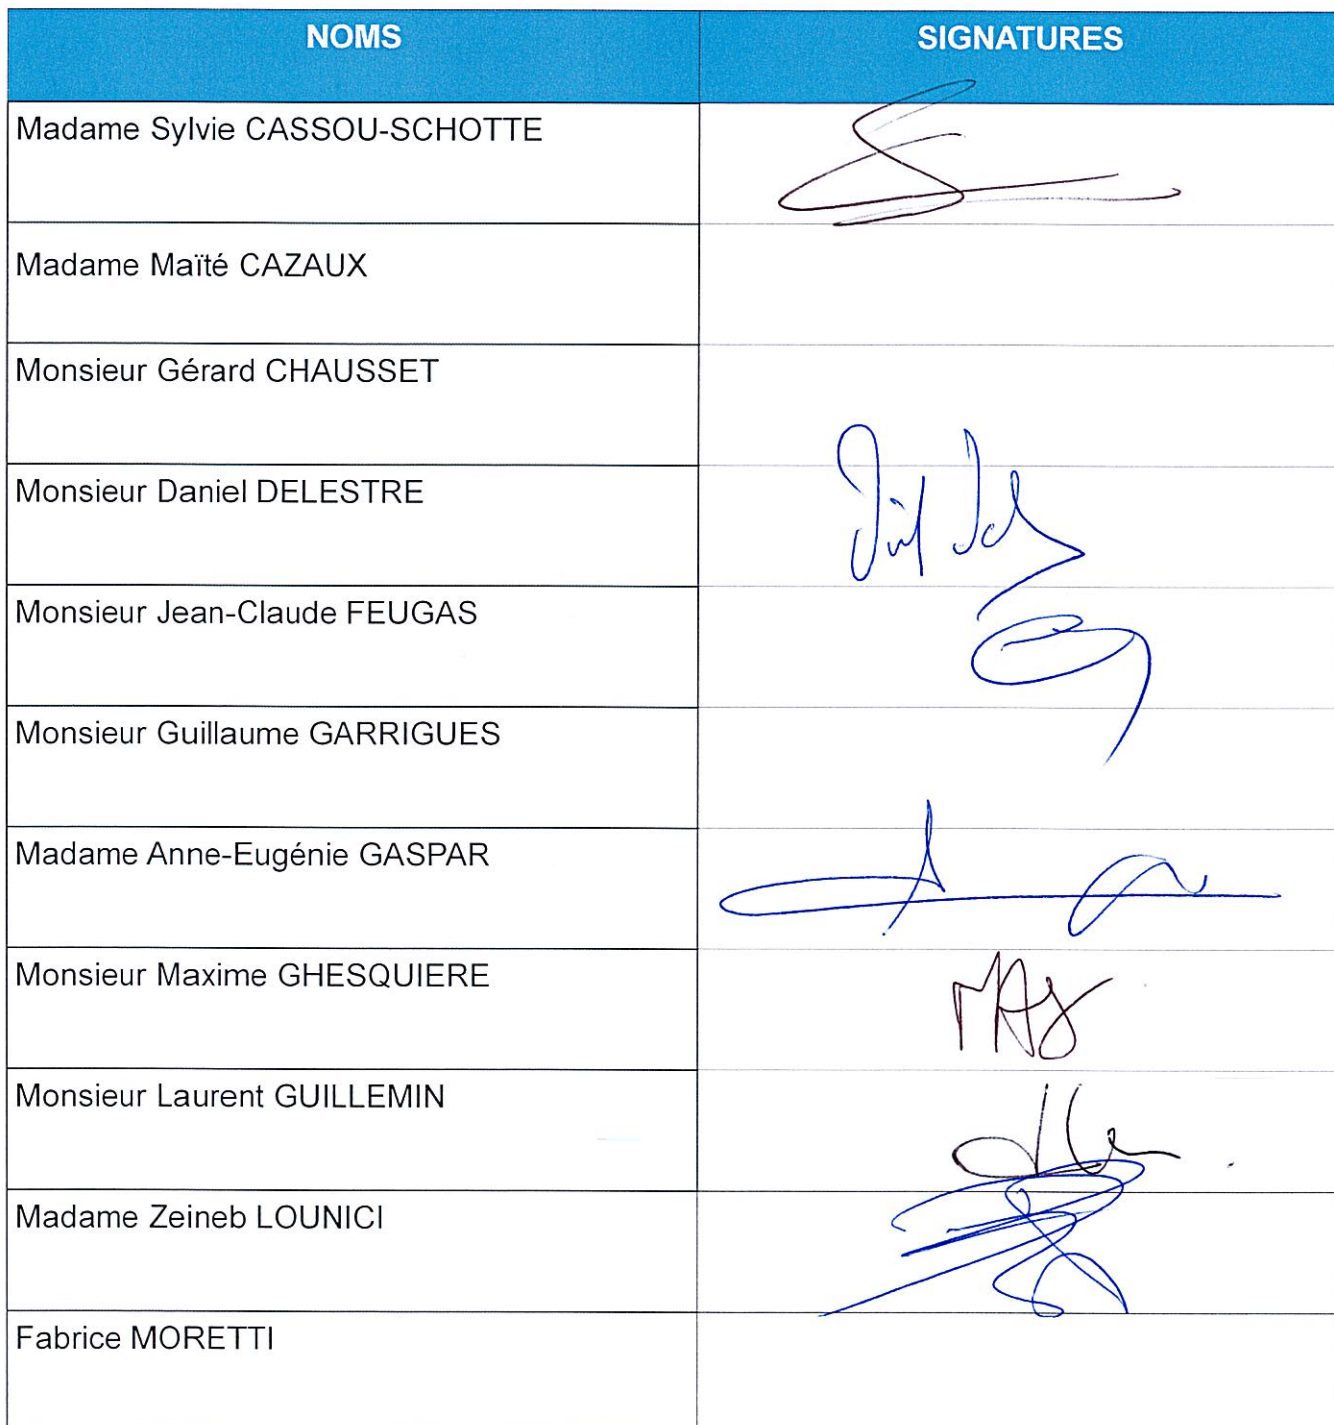 NOMS SIGNATURES
Madame Sylvie CASSOU-SCHOTTE
Madame Maïté CAZAUX
Monsieur Gérard CHAUSSET
Monsieur Daniel DELESTRE
Monsieur Jean-Claude FEUGAS
Monsieur Guillaume GARRIGUES
Madame Anne-Eugénie GASPAR
Monsieur Maxime GHESQUIERE
Monsieur Laurent GUILLEMIN
Madame Zeineb LOUNICI
Fabrice MORETTI